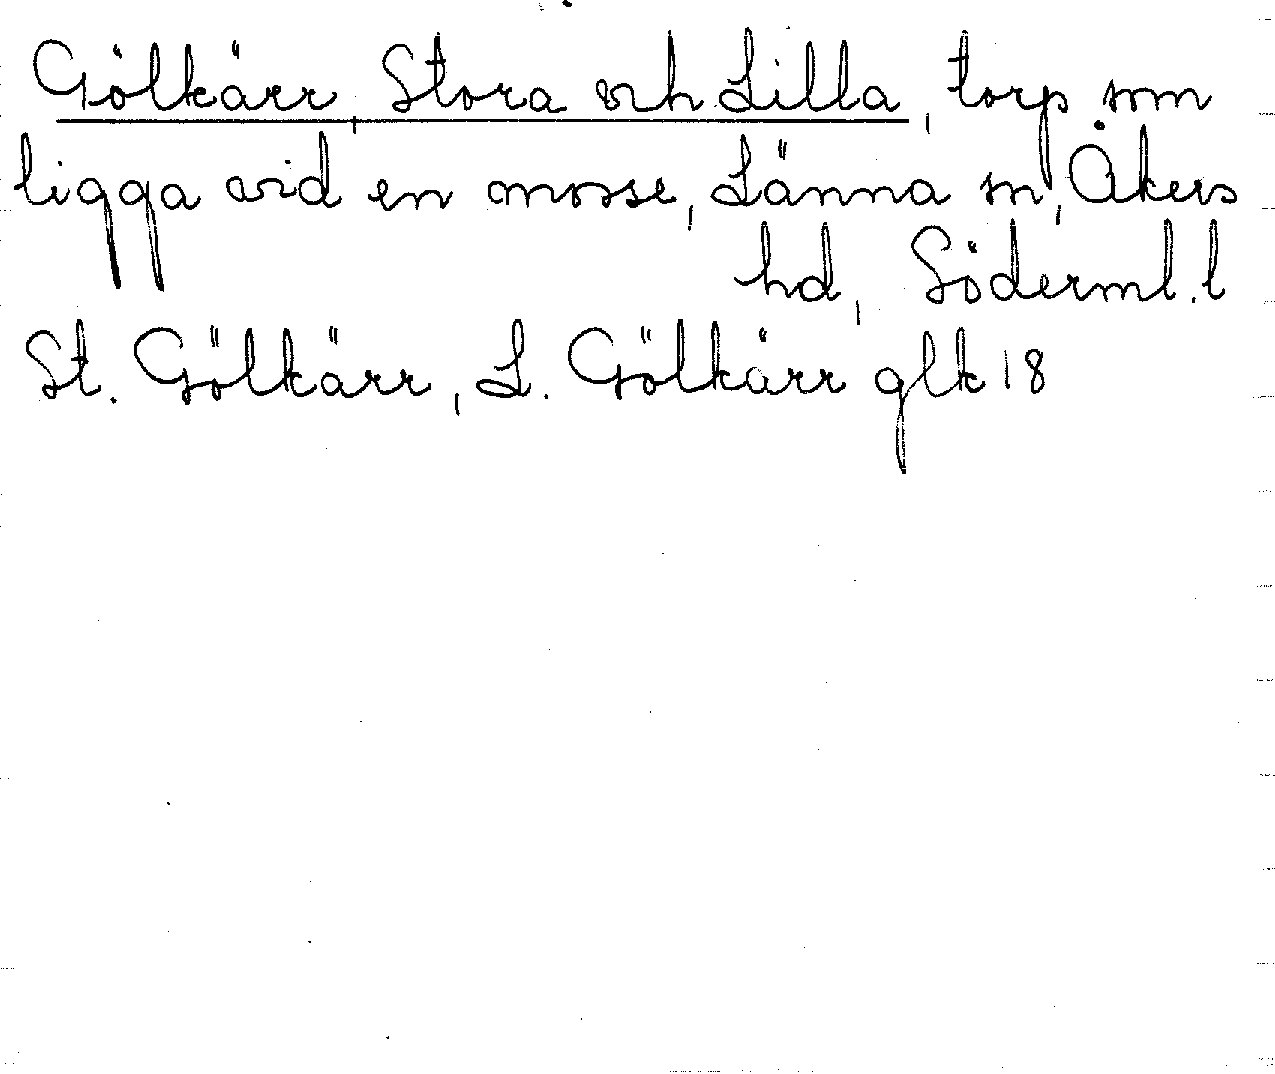 Gölkärr, Stora och Lilla, torp som
ligga vid en mosse, Länna sn, Åkers
hd, Söderml. l
St. Gölkärr, L. Gölkärr glk 18